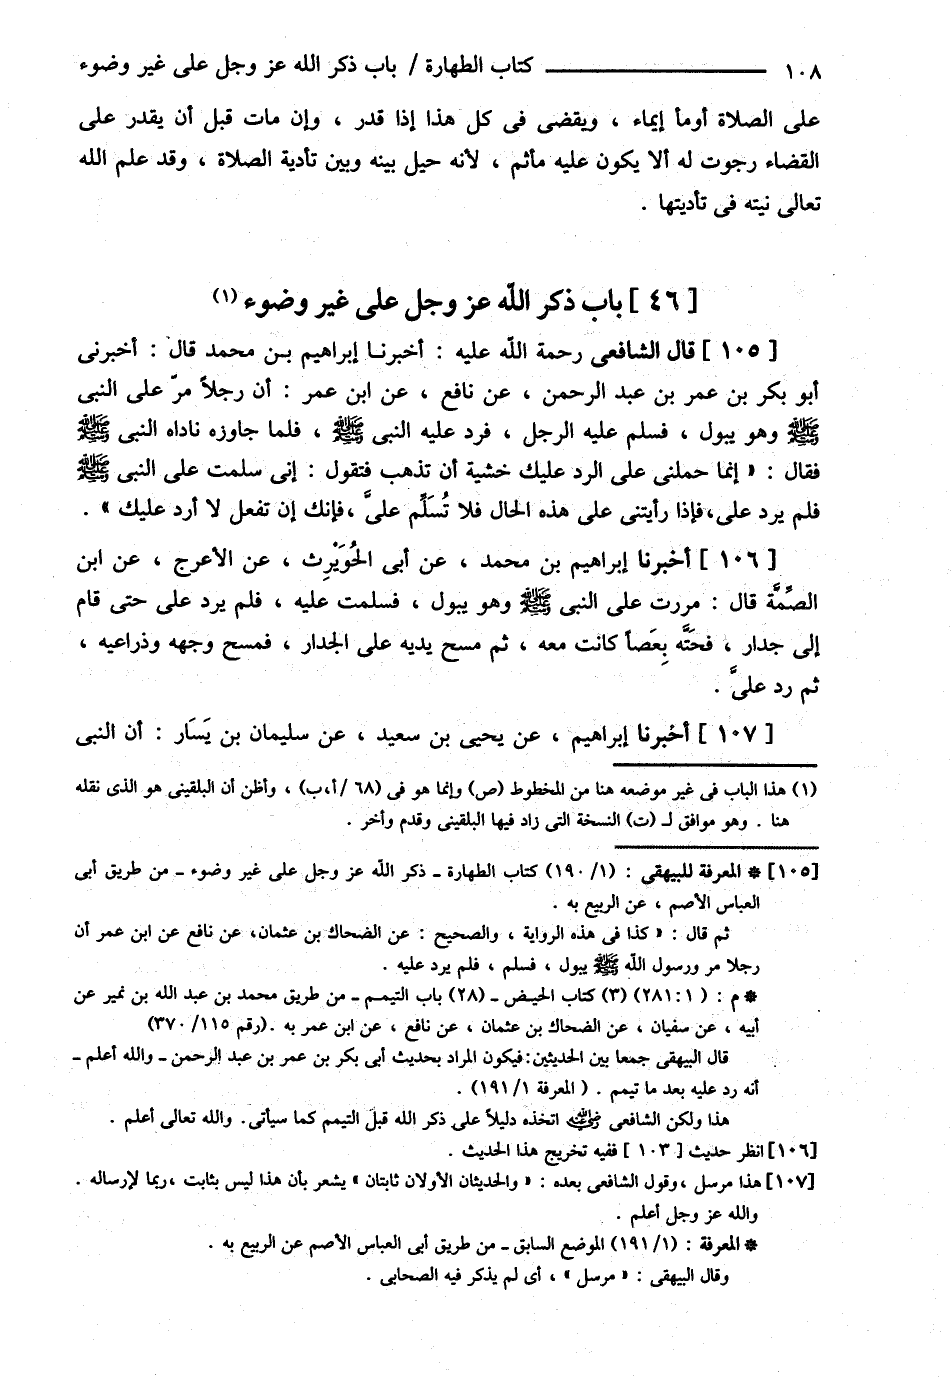 ١٠٨ ـــــــــــــ كتاب الطهارة / باب ذكر الله عز وجل على غير وضوء
على الصلاة أومأ إيماء ، ويقضى فى كل هذا إذا قدر ، وإن مات قبل أن يقدر على
القضاء رجوت له ألا يكون عليه مأثم ، لأنه حيل بينه وبين تأدية الصلاة ، وقد علم الله
تعالى نيته فى تأديتها .
[ ٤٦ ] باب ذكر الله عز وجل على غير وضوء (١)
[ ١٠٥ ] قال الشافعى رحمة الله عليه : أخبرنا إبراهيم بن محمد قال : أخبرنى
أبو بكر بن عمر بن عبد الرحمن ، عن نافع ، عن ابن عمر : أن رجلاً مرّ على النبى
ﷺ وهو يبول ، فسلم عليه الرجل ، فرد عليه النبى ﷺ ، فلما جاوزه ناداه النبى ﷺ
فقال : « إنما حملنى على الرد عليك خشية أن تذهب فتقول : إنى سلمت على النبى ﷺ
فلم يرد على،فإذا رأيتنى على هذه الحال فلا تُسَلِّم علىَّ ،فإنك إن تفعل لا أرد عليك » .
[ ١٠٦ ] أخبرنا إبراهيم بن محمد ، عن أبى الحُوَيْرِث ، عن الأعرج ، عن ابن
الصِّمَّة قال : مررت على النبى ﷺ وهو يبول ، فسلمت عليه ، فلم يرد على حتى قام
إلى جدار ، فحتَّه بِعَصاً كانت معه ، ثم مسح يديه على الجدار ، فمسح وجهه وذراعيه ،
ثم رد علىَّ .
[ ١٠٧ ] أخبرنا إبراهيم ، عن يحيى بن سعيد ، عن سليمان بن يَسَار : أن النبى
(١) هذا الباب فى غير موضعه هنا من المخطوط (ص) وإنما هو فى (٦٨ /أ،ب) ، وأظن أن البلقينى هو الذى نقله
هنا . وهو موافق لـ (ت) النسخة التى زاد فيها البلقينى وقدم وأخر .
[١٠٥] * المعرفة للبيهقى : (١/ ١٩٠) كتاب الطهارة ـ ذكر الله عز وجل على غير وضوء ـ من طريق أبى
العباس الأصم ، عن الربيع به .
ثم قال : « كذا فى هذه الرواية ، والصحيح : عن الضحاك بن عثمان، عن نافع عن ابن عمر أن
رجلا مر ورسول الله ﷺ يبول ، فسلم ، فلم يرد عليه .
* م : ( ١ :٢٨١) (٣) كتاب الحيض ـ (٢٨) باب التيمم ـ من طريق محمد بن عبد الله بن نمير عن
أبيه ، عن سفيان ، عن الضحاك بن عثمان ، عن نافع ، عن ابن عمر به .(رقم ١١٥/ ٣٧٠)
قال البيهقى جمعا بين الحديثين:فيكون المراد بحديث أبى بكر بن عمر بن عبد الرحمن ـ والله أعلم ـ
أنه رد عليه بعد ما تيمم . ( المعرفة ١/ ١٩١) .
هذا ولكن الشافعى رضي الله عنه اتخذه دليلاً على ذكر الله قبل التيمم كما سيأتى. والله تعالى أعلم .
[١٠٦] انظر حديث [ ١٠٣ ] ففيه تخريج هذا الحديث .
[١٠٧] هذا مرسل ،وقول الشافعى بعده : « والحديثان الأولان ثابتان » يشعر بأن هذا ليس بثابت ،ربما لإرساله .
والله عز وجل أعلم .
* المعرفة : (١/ ١٩١) الموضع السابق ـ من طريق أبى العباس الأصم عن الربيع به .
وقال البيهقى : « مرسل » ، أى لم يذكر فيه الصحابى .